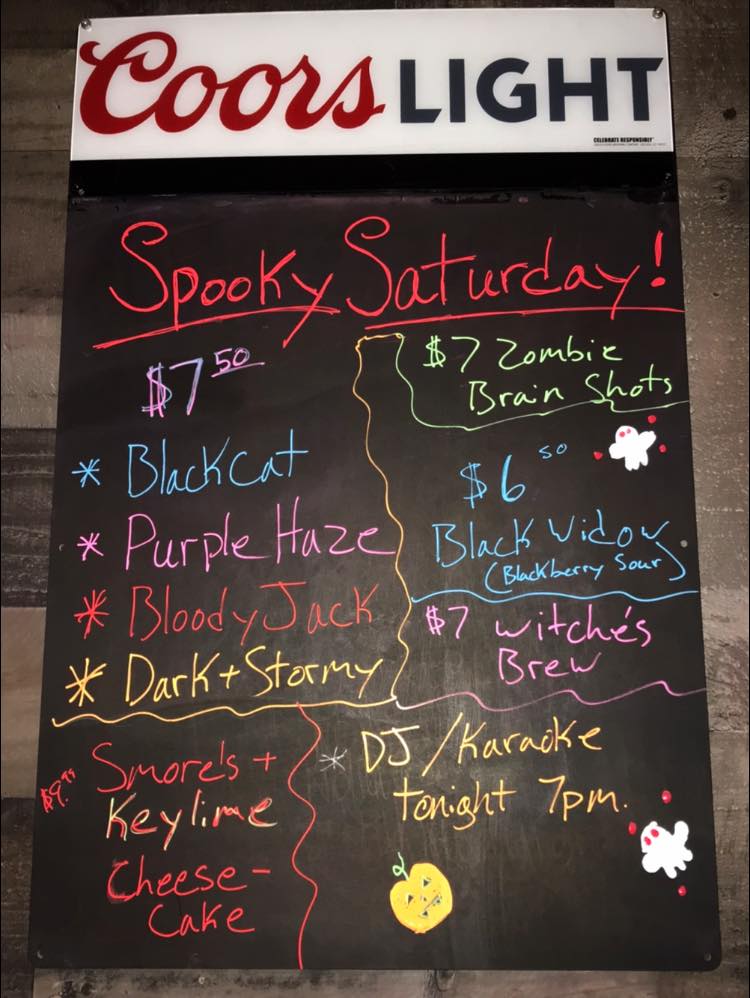 Coors LIGHT
CELEBRATE RESPONSIBLY
Spooky Saturday!
$7 50
* Blackcat
* Purple Haze
* Bloody Jack
* Dark + Stormy
$7 Zombie
Brain Shots
$6 50
Black Widow
(Blackberry Sour)
$7 witche's
Brew
Smore's +
Keylime
Cheese-
Cake
* DJ/Karaoke
tonight 7pm.